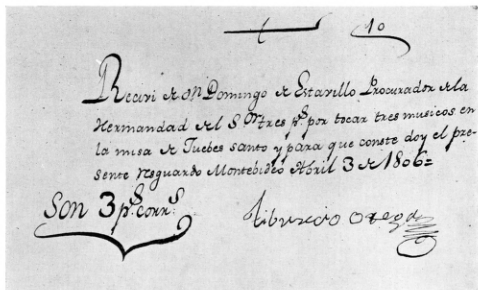 10
Recivi de Dn Domingo de Estavillo Procurador de la
Hermandad del Sor tres ps por tocar tres musicos en
la misa de Juebes santo y para que conste doy el pre-
sente resguardo Montebideo Abril 3 de 1806=
Son 3 ps corrs
Tiburcio Ortega